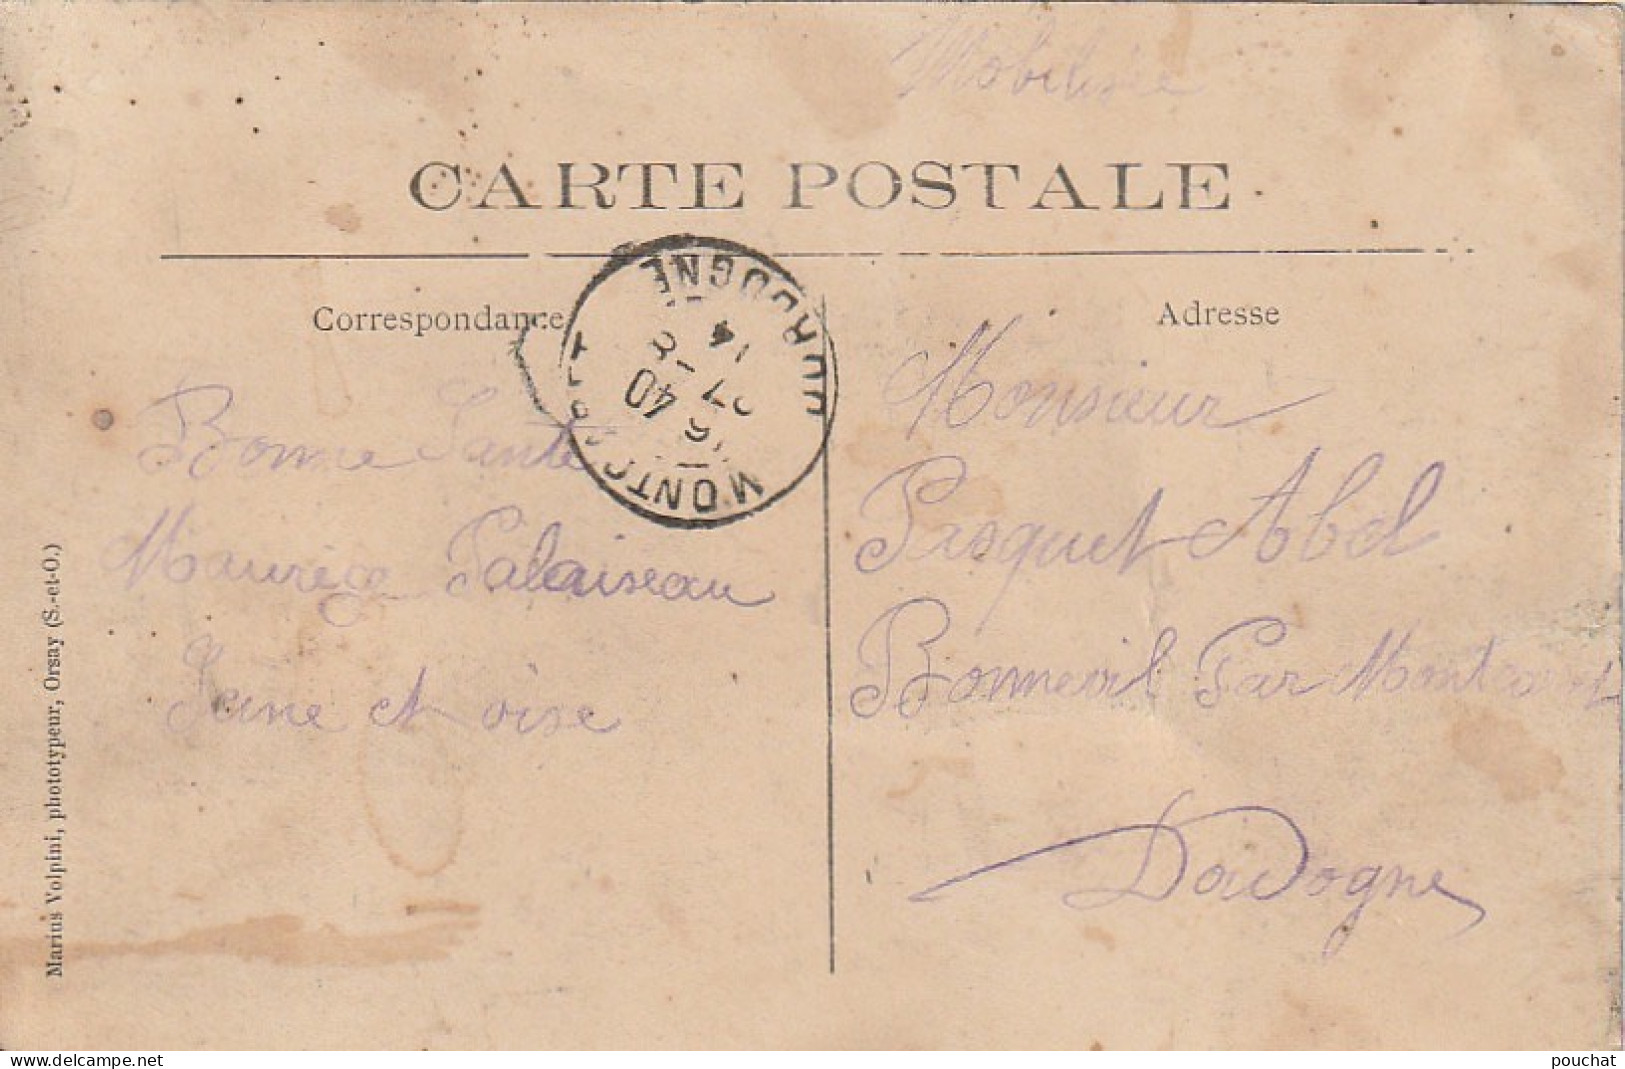 Mobilisée
CARTE POSTALE
Correspondance
Adresse
MONTCARET DORDOGNE
16 40
27 -8
14
Bonne Santé
Maurège Palaiseau
Seine et oise
Monsieur
Pasquet Abel
Bonnevil Par Montcaret
Dordogne
Marius Volpini, phototypeur, Orsay (S.-et-O.)
www.delcampe.net
pouchat